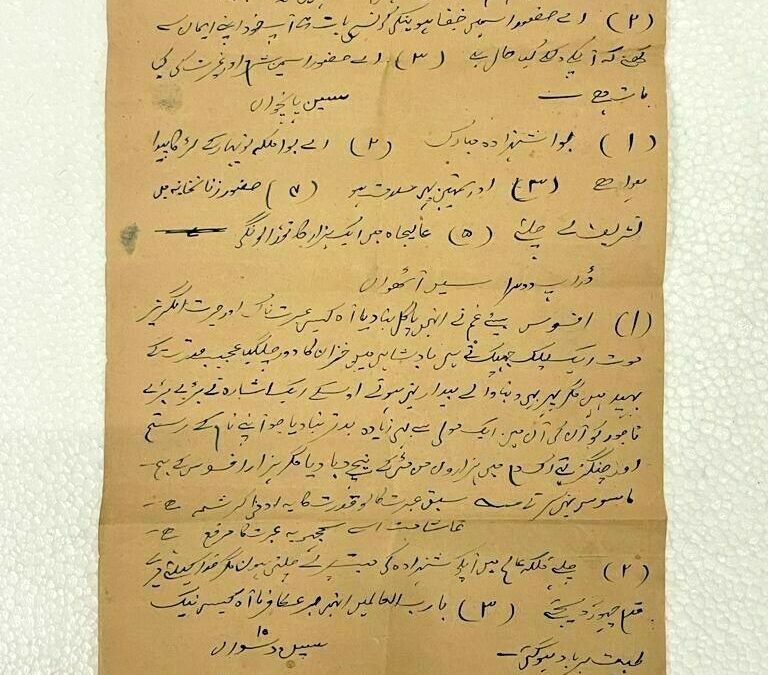 (۲) اے حضور اسمیں خفا ہونیکی کونسی بات ہے آپ خود اپنے ایمان سے
کہئے کہ آپکے دلکا کیا حال ہے (۳) اے حضور اسمیں شرم اور غیرت کی کیا
بات ہے
سین پانچواں
(۱) بوا شہزادہ مبارک (۲) اے بوا ملکہ نوبہار کے لڑکا پیدا
ہوا ہے (۳) اور تمہیں بھی سلامت ہو (۴) حضور زنانخانہ میں
تشریف لے چلئے (۵) عالیجاہ میں ایک ہزار کا توڑا لونگی
ڈراپ دوسرا سین آٹھواں
(۱) افسوس بیٹے کے غم نے انہیں پاگل بنا دیا آہ کیسی عبرت ناک اور حیرت انگیز
موت ایک پلک جھپکتے ہی بادشاہی میں خزاں کا دور چلگیا عجیب قدرت کے
بھید ہیں مگر پھر بھی دنیا والے بیدار نہیں ہوتے اوسکے ایک اشارہ نے بڑے بڑے
تاجور کو آن کی آن میں ایک سے بھی زیادہ بدتر بنا دیا جو اپنے نام کے رستم
اور چنگیز تھے اکدم میں ہزاروں من مٹی کے نیچے دبا دیا مگر ہزار افسوس کے ہم
نہیں کرتے سبق عبرت کا لو قدرت کا یہ ادنیٰ کرشمہ ہے
تماشا مت اسے سمجھو یہ عبرت کا مرقع ہے
(۲) چلئے ملکہ عالم میں آپکو شہزادہ کی پر لے چلتی ہوں مگر خدا کیلئے میرے
قدم چھوڑ دیجئے (۳) یا رب العالمین انہیں صبر عطا فرما آہ کیسی نیک
طبیعت برباد ہوگئی
سین دسواں ۱۰